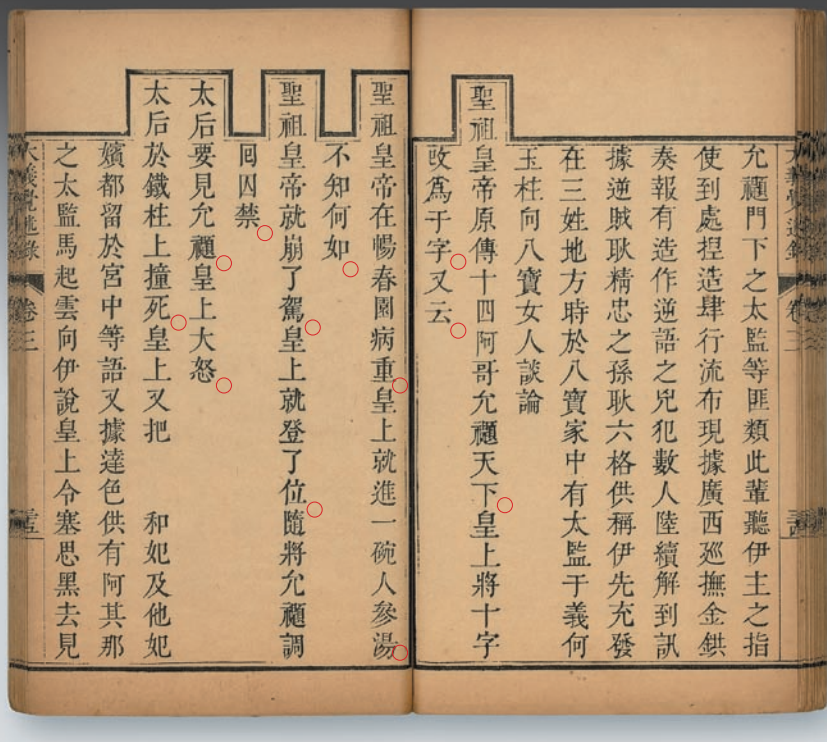 允禵門下之太監等匪類此輩聽伊主之指
使到處捏造肆行流布現據廣西廵撫金鉷
奏報有造作逆語之兇犯數人陸續解到訊
據逆賊耿精忠之孫耿六格供稱伊先充發
在三姓地方時於八寶家中有太監于義何
玉柱向八寶女人談論
聖祖皇帝原傳十四阿哥允禵天下皇上將十字
改爲于字又云
聖祖皇帝在暢春園病重皇上就進一碗人參湯
不知何如
聖祖皇帝就崩了駕皇上就登了位隨將允禵調
囘囚禁
太后要見允禵皇上大怒
太后於鐵柱上撞死皇上又把 和妃及他妃
嬪都留於宮中等語又據達色供有阿其那
之太監馬起雲向伊說皇上令塞思黑去見
大義覺迷錄 卷三